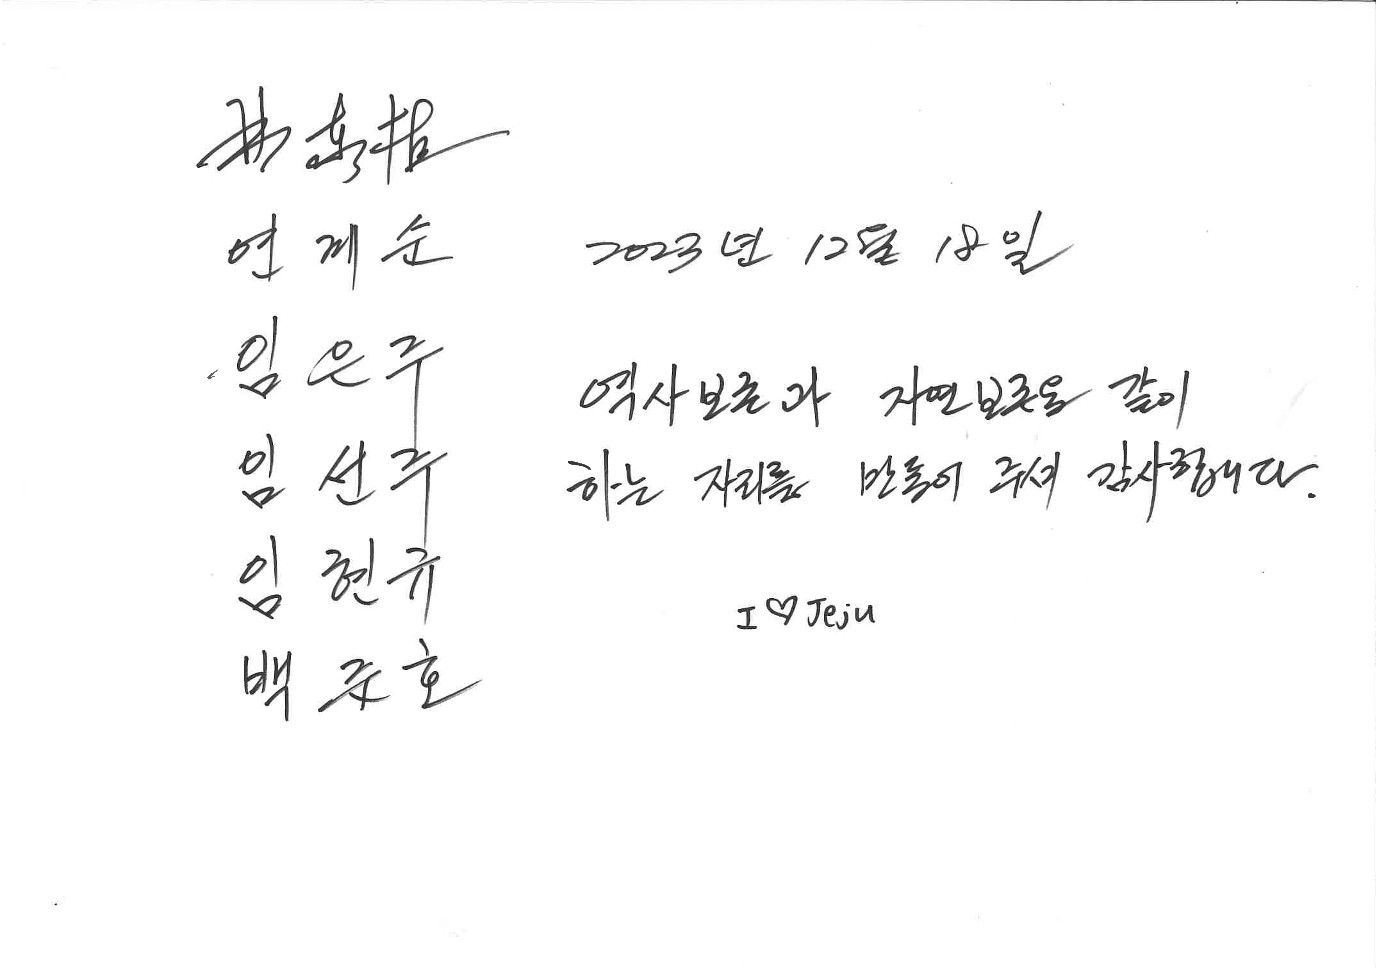 연계순
임은주
임선주
임현규
백준호
2023년 12월 18일
역사보존과 자연보존을 같이
하는 자리를 만들어 주셔 감사드립니다.
I ♡ Jeju